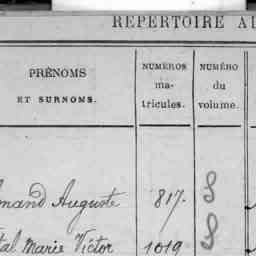 REPERTOIRE AL
PRÉNOMS
ET SURNOMS.
NUMÉROS
ma-
tricules.
NUMÉRO
du
volume.
mand Auguste 817. S
tal Marie Victor 1019 S